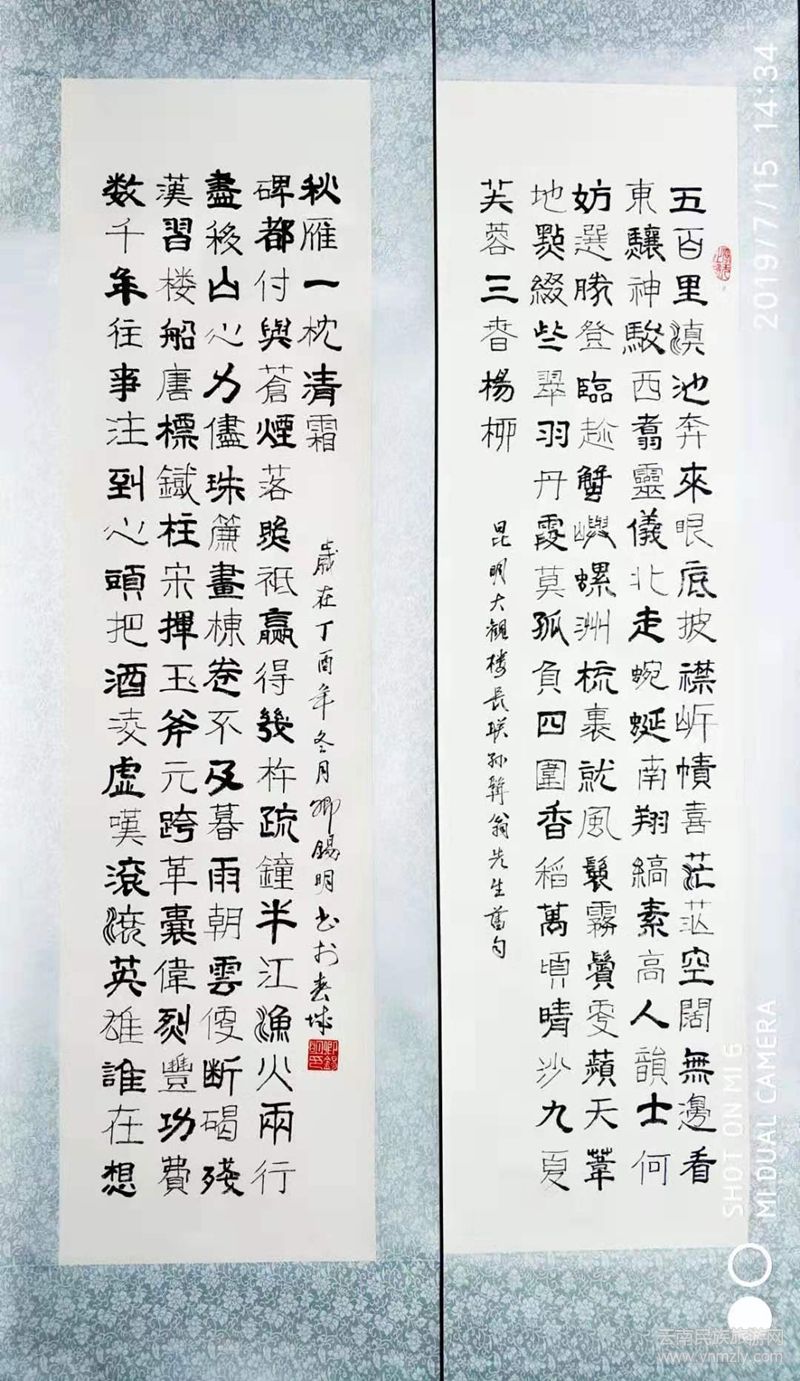 五百里滇池奔來眼底披襟岸幘喜茫茫空闊無邊看
東驤神駿西翥靈儀北走蜿蜒南翔縞素高人韻士何
妨選勝登臨趁蟹嶼螺洲梳裹就風鬟霧鬢更蘋天葦
地點綴些翠羽丹霞莫孤負四圍香稻萬頃晴沙九夏
芙蓉三春楊柳
昆明大觀楼長联孙髯翁先生舊句
数千年往事注到心頭把酒凌虛嘆滾滾英雄誰在想
漢習楼船唐標鐵柱宋揮玉斧元跨革囊偉烈豐功費
盡移山心力儘珠簾畫棟卷不及暮雨朝雲便断碣殘
碑都付與蒼煙落照祇贏得幾杵疏鐘半江漁火兩行
秋雁一枕清霜
歲在丁酉年冬月卿錫明书於春城
卿錫明印
2019/7/15 14:34
SHOT ON MI 6
MI DUAL CAMERA
云南民族旅游网
www.ynmzly.com